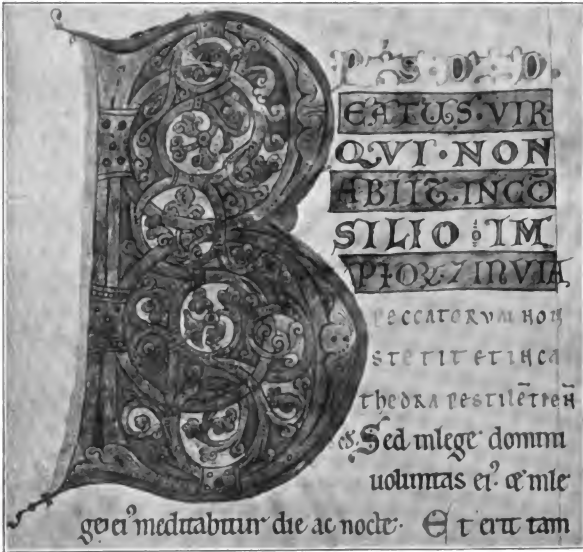 B
EATUS·VIR
QVI·NON
ABIIT·INCŌ
SILIO IM
PIOR·7 INVIA
PECCATORVM NON
STETIT ET IN CA
THEDRA PESTILĒTIE Ñ
Sed inlege domini
uoluntas ei⁹· & inle
ge ei⁹ meditabitur die ac nocte· Et erit tam